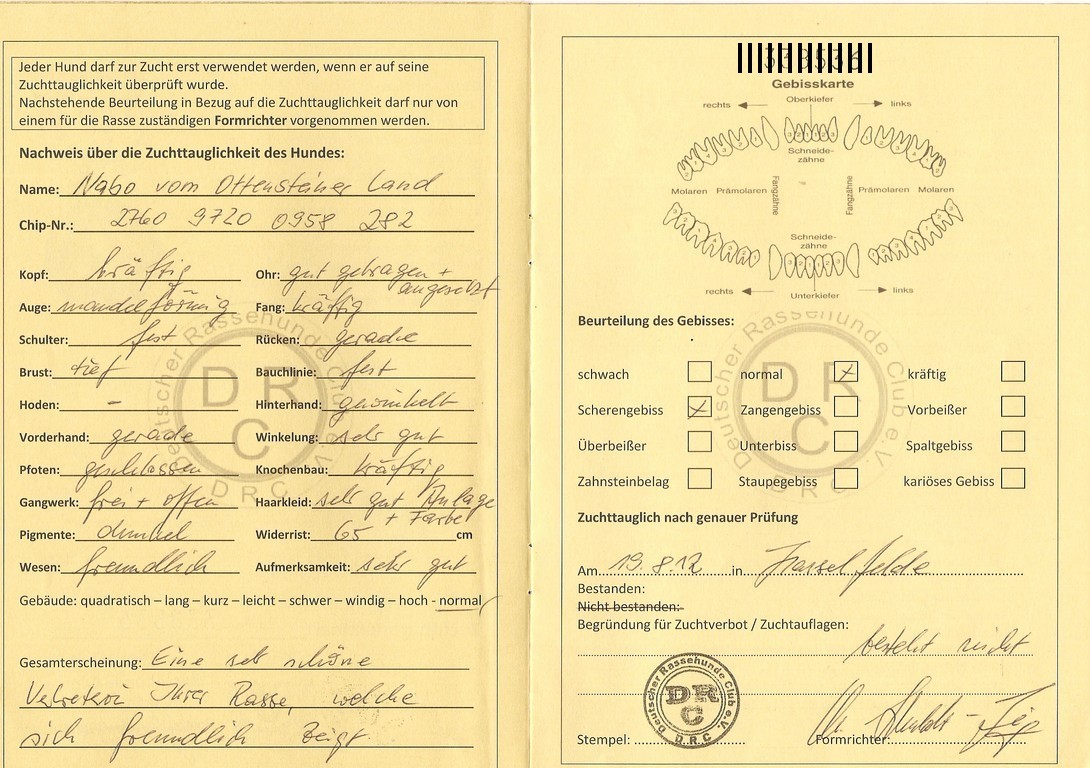 Jeder Hund darf zur Zucht erst verwendet werden, wenn er auf seine
Zuchttauglichkeit überprüft wurde.
Nachstehende Beurteilung in Bezug auf die Zuchttauglichkeit darf nur von
einem für die Rasse zuständigen Formrichter vorgenommen werden.
Nachweis über die Zuchttauglichkeit des Hundes:
Name: Nabo vom Ottensteiner Land
Chip-Nr.: 2760 9720 0958 282
Kopf: kräftig Ohr: gut getragen +
angesetzt
Auge: mandelförmig Fang: kräftig
Schulter: fest Rücken: gerade
Brust: tief Bauchlinie: fest
Hoden: - Hinterhand: gewinkelt
Vorderhand: gerade Winkelung: sehr gut
Pfoten: geschlossen Knochenbau: kräftig
Gangwerk: frei + offen Haarkleid: sehr gut Anlage
+ Farbe
Pigmente: dunkel Widerrist: 65 cm
Wesen: freundlich Aufmerksamkeit: sehr gut
Gebäude: quadratisch – lang – kurz – leicht – schwer – windig – hoch - normal
Gesamterscheinung: Eine seh schöne
Vertreterin Ihrer Rasse, welche
sich freundlich zeigt.
Deutscher Rassehunde Club e.V.
DRC
D.R.C
Gebisskarte
rechts Oberkiefer links
Schneide-
zähne
Molaren Prämolaren Fangzähne Fangzähne Prämolaren Molaren
Schneide-
zähne
rechts Unterkiefer links
Beurteilung des Gebisses:
schwach normal x kräftig
Scherengebiss x Zangengebiss Vorbeißer
Überbeißer Unterbiss Spaltgebiss
Zahnsteinbelag Staupegebiss kariöses Gebiss
Deutscher Rassehunde Club e.V.
DRC
D.R.C
Zuchttauglich nach genauer Prüfung
Am 19.8.12 in Hasselfelde
Bestanden:
Nicht bestanden:
Begründung für Zuchtverbot / Zuchtauflagen:
besteht nicht
Deutscher Rassehunde Club e.V.
DRC
D.R.C
Stempel: Formrichter: